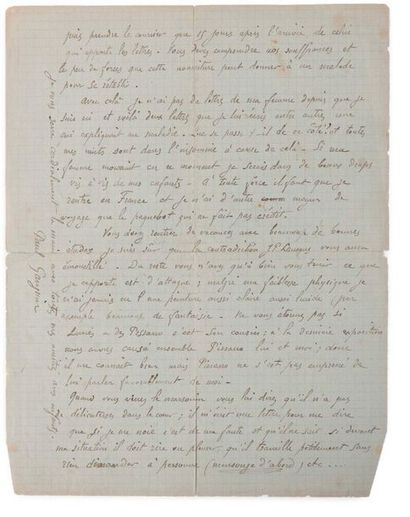 puis prendre le courrier que 15 jours après l'arrivée de celui
qui apporte les lettres. Vous devez comprendre nos souffrances et
le peu de forces que cette nourriture peut donner à un malade
pour se rétablir.
Avec cela je n'ai pas de lettres de ma femme depuis que je
suis ici et voilà deux lettres que je lui écris entre autre une
qui expliquait ma maladie. Que se passe-t-il de ce côté là toutes
mes nuits sont dans l'insomnie à cause de cela. Si ma
femme mourait en ce moment je serais dans de beaux draps
vis à vis de mes enfants. A toute force il faut que je
rentre en France et je n'ai d'autre moyen de
voyage que le paquebot qui ne fait pas crédit.
Vous devez rentrer de vacances avec beaucoup de bonnes
études je suis sûr que la contradiction vous aura
émoustillé. Du reste vous n'avez qu'à bien vous tenir ce que
je rapporte est d'attaque; malgré ma faiblesse physique je
n'ai jamais eu une peinture aussi claire aussi lucide par
exemple beaucoup de fantaisie. Ne vous étonnez pas si
de Pissaro c'est son cousin; à la dernière exposition
nous avons causé ensemble Pissaro lui et moi; donc
il me connait bien mais Pissaro ne s'est pas empressé de
lui parler favorablement de moi.
Quand vous verrez le vous lui direz qu'il n'a pas
de délicatesse dans le cœur; il m'écrit une lettre pour me dire
que si je me noie c'est de ma faute et qu'il ne sait si devant
ma situation il doit rire ou pleurer, qu'il travaille péniblement sans
rien demander à personne (mensonge d'abord) etc....
Je vous serre cordialement la main avec
Paul Gauguin